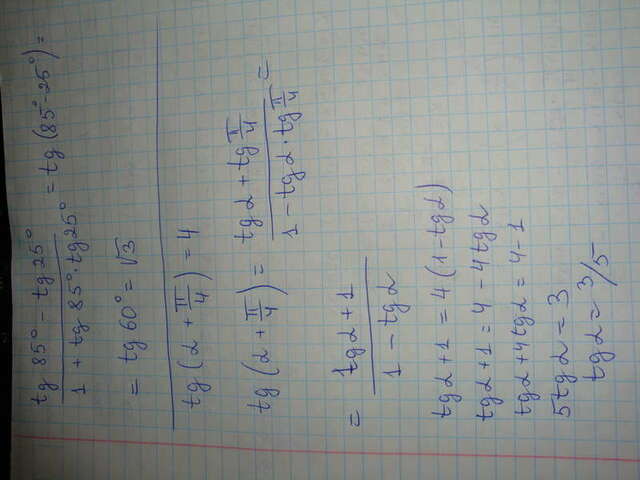 tg 85° - tg 25° / 1 + tg 85° · tg 25° = tg (85° - 25°) =
= tg 60° = √3
tg (α + π/4) = 4
tg (α + π/4) = tg α + tg π/4 / 1 - tg α · tg π/4 =
= tg α + 1 / 1 - tg α
tg α + 1 = 4 (1 - tg α)
tg α + 1 = 4 - 4 tg α
tg α + 4 tg α = 4 - 1
5 tg α = 3
tg α = 3/5